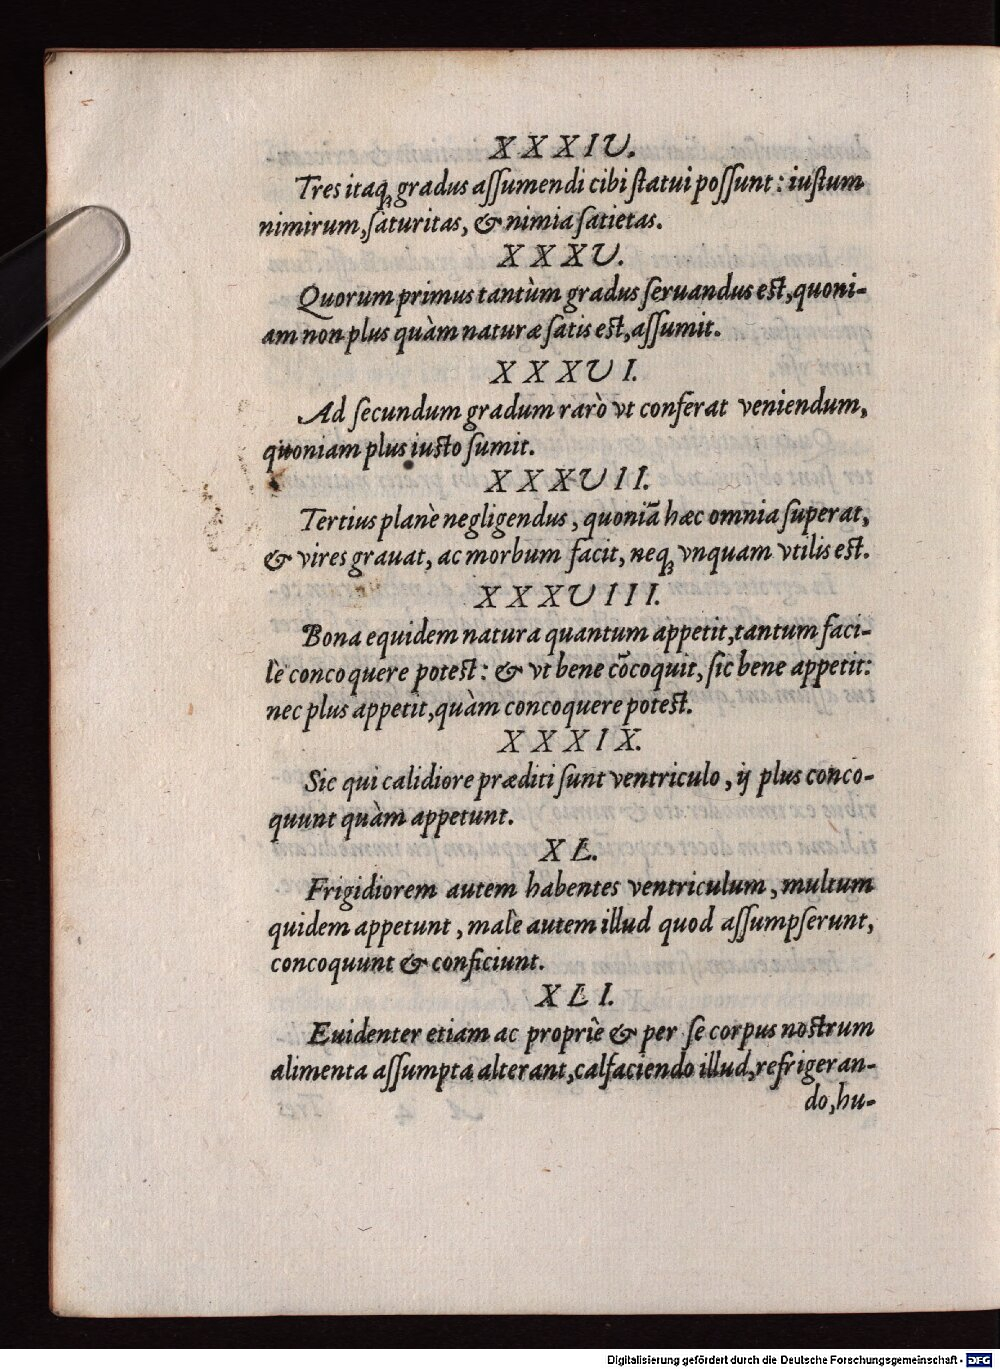 XXXIV.
Tres itaq; gradus aſſumendi cibi ſtatui poſſunt: iuſtum
nimirum, ſaturitas, & nimia ſatietas.
XXXV.
Quorum primus tantùm gradus ſeruandus eſt, quoni-
am non plus quàm naturæ ſatis eſt, aſſumit.
XXXVI.
Ad ſecundum gradum rarò vt conferat veniendum,
quoniam plus iuſto ſumit.
XXXVII.
Tertius planè negligendus, quoniā hæc omnia ſuperat,
& vires grauat, ac morbum facit, neq; vnquam vtilis eſt.
XXXVIII.
Bona equidem natura quantum appetit, tantum faci-
lè concoquere poteſt: & vt bene cōcoquit, ſic bene appetit:
nec plus appetit, quàm concoquere poteſt.
XXXIX.
Sic qui calidiore præditi ſunt ventriculo, ij plus conco-
quunt quàm appetunt.
XL.
Frigidiorem autem habentes ventriculum, multum
quidem appetunt, malè autem illud quod aſſumpſerunt,
concoquunt & conficiunt.
XLI.
Euidenter etiam ac propriè & per ſe corpus noſtrum
alimenta aſſumpta alterant, calfaciendo illud, refrigeran-
do, hu-
Digitalisierung gefördert durch die Deutsche Forschungsgemeinschaft - DFG